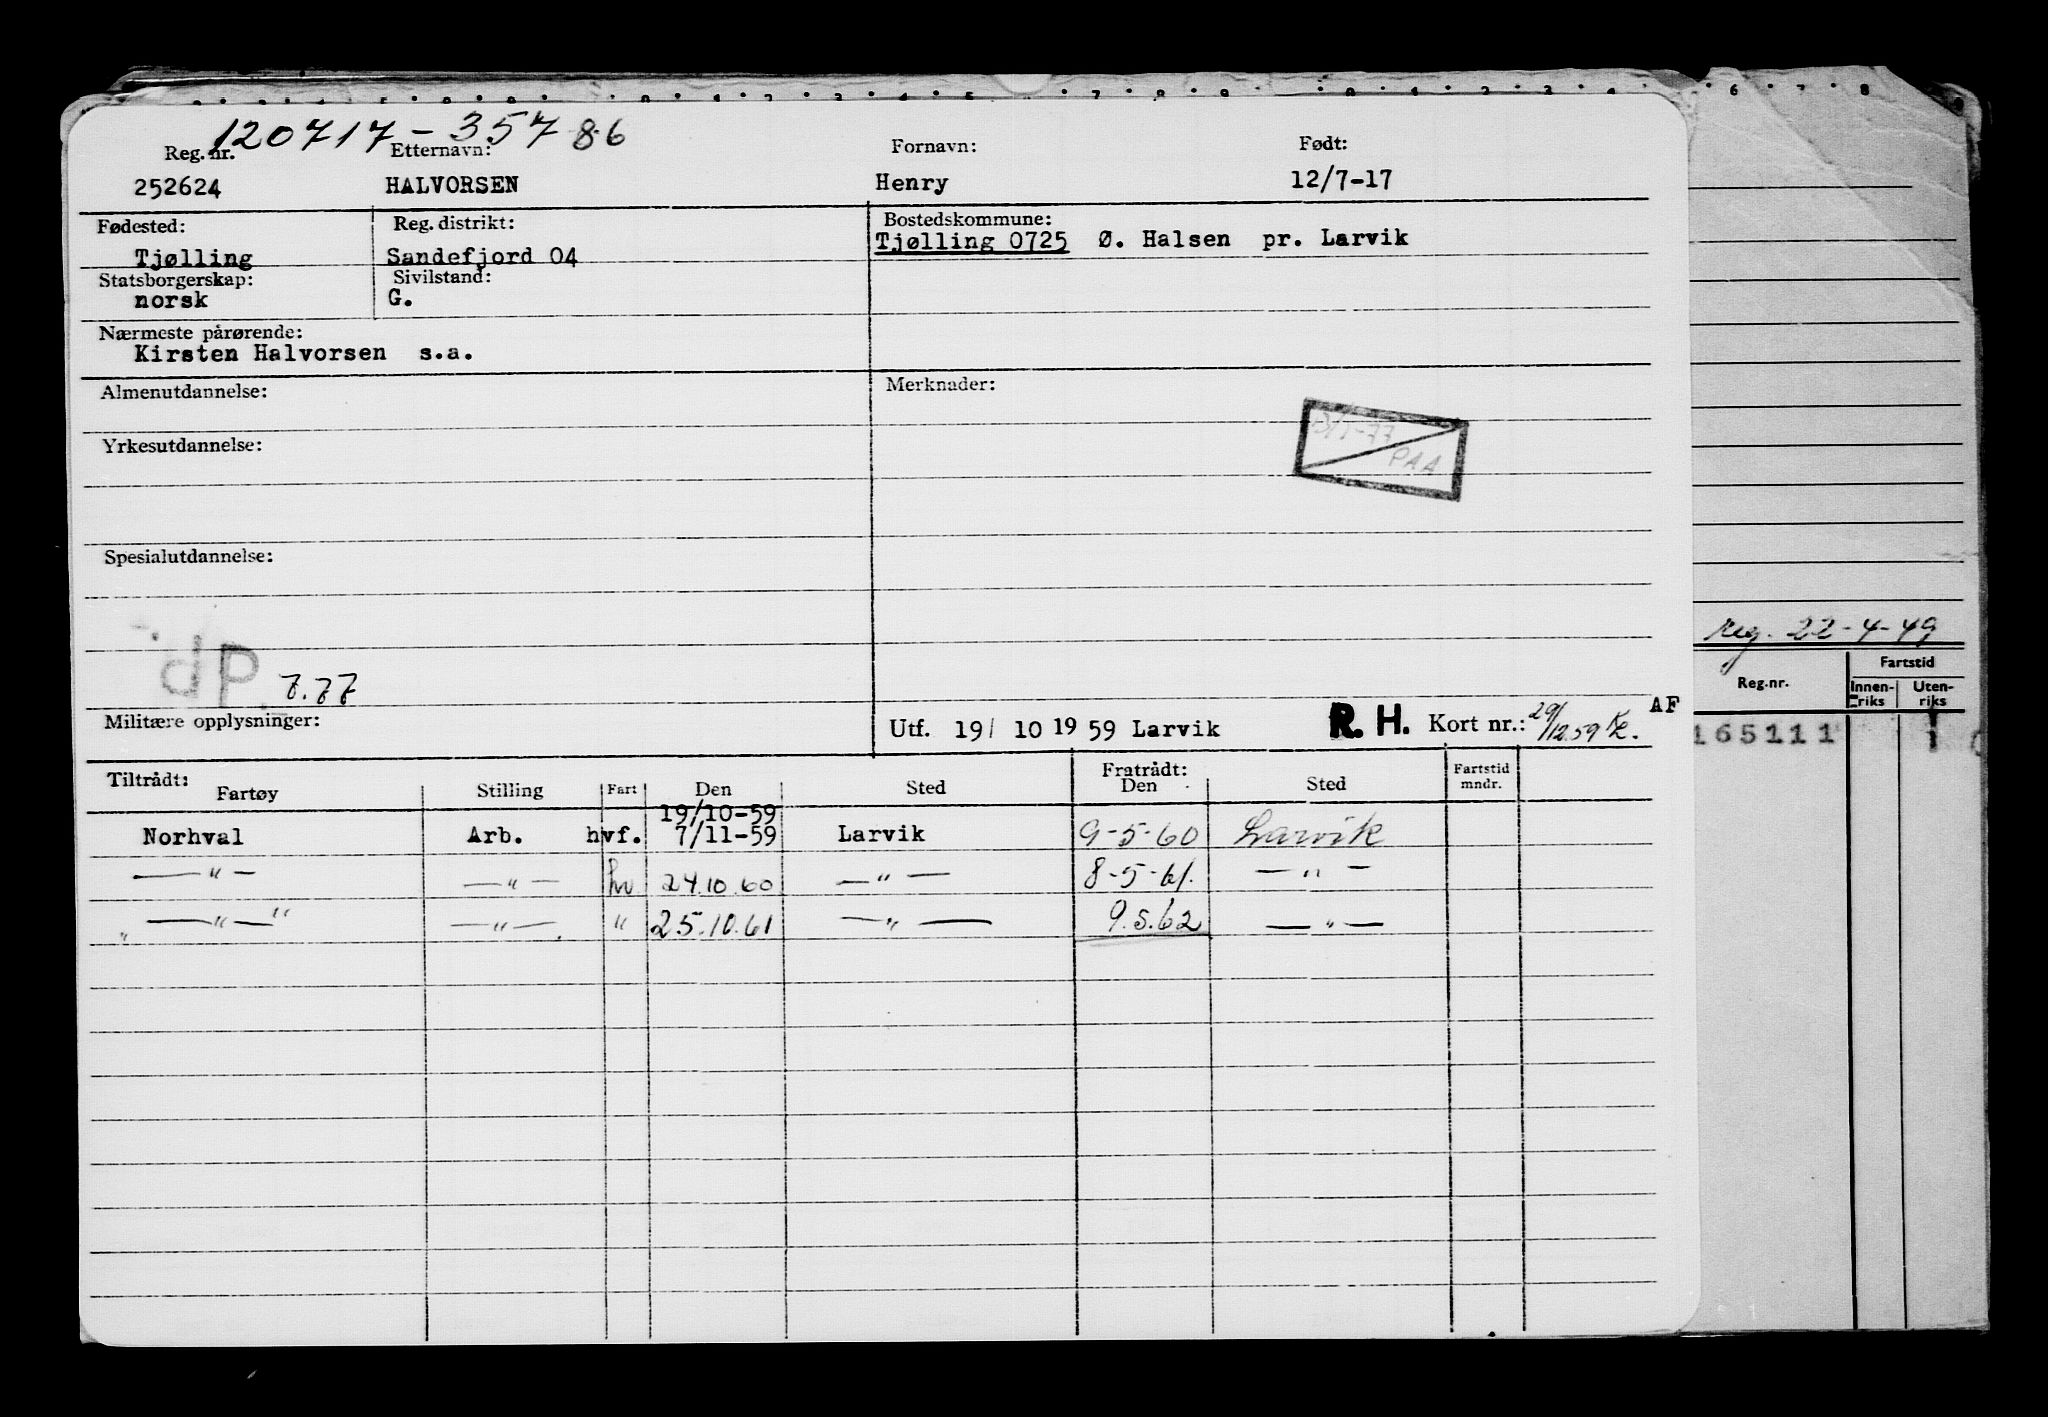 120717-35786
Reg. nr. Etternavn: Fornavn: Født:
252624 HALVORSEN Henry 12/7-17
Fødested: Reg. distrikt: Bostedskommune:
Tjølling Sandefjord 04 Tjølling 0725 Ø. Halsen pr. Larvik
Statsborgerskap: Sivilstand:
norsk G.
Nærmeste pårørende:
Kirsten Halvorsen s.a.
Almenutdannelse: Merknader:
PAA
Yrkesutdannelse:
Spesialutdannelse:
reg. 22-4-49
dP 7.77
Militære opplysninger: Utf. 19/ 10 19 59 Larvik R. H. Kort nr.: 29/12 59 AF
Reg.nr. Fartstid
Innenriks Utenriks
165111 1
Tiltrådt: Fratrådt:
Fartøy Stilling Fart Den Sted Den Sted Fartstid mndr.
19/10-59
Norhval Arb. hvf. 7/11-59 Larvik 9-5-60 Larvik
—"— —"— hv 24.10.60 —"— 8-5-61. —"—
—"— —"— " 25.10.61 —"— 9.5.62 —"—